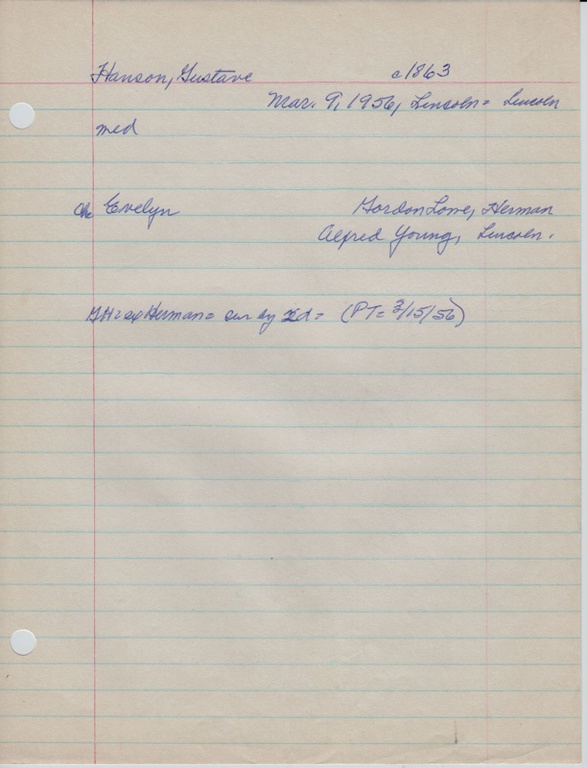 Hanson, Gustave c1863
Mar. 9, 1956, Lincoln = Lincoln
med
ch Evelyn Gordon Lowe, Herman
Alfred Young, Lincoln.
Herman = sur by = (PT = 3/15/56)